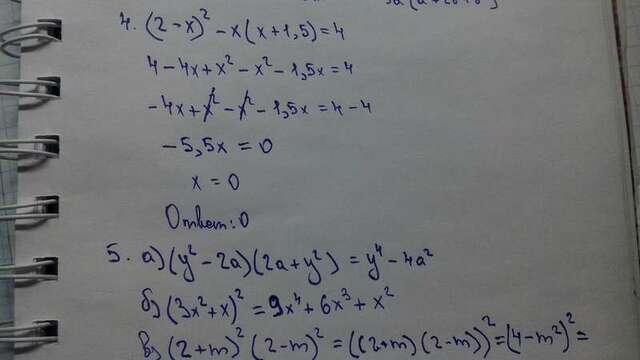 4. (2-x)² - x(x+1,5)=4
4-4x+x²-x²-1,5x=4
-4x+x²-x²-1,5x=4-4
-5,5x=0
x=0
Ответ:0
5. а)(y²-2a)(2a+y²)=y⁴-4a²
б)(3x²+x)²=9x⁴+6x³+x²
в)(2+m)²(2-m)²=((2+m)(2-m))²=(4-m²)²=